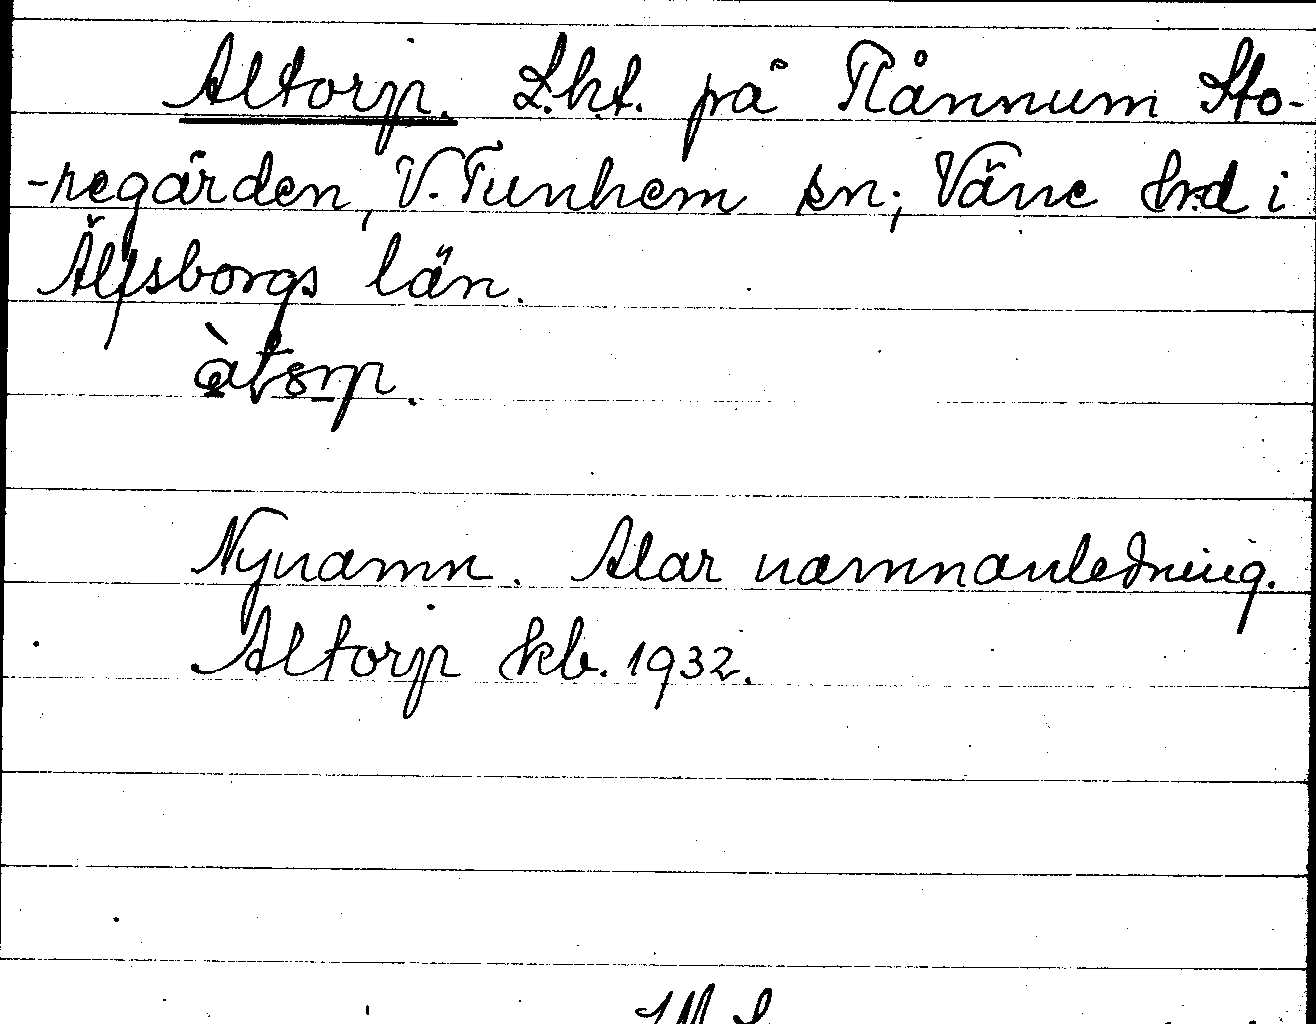 Altorp. L.ht. på Flännum Sto-
-regården, V. Tunhem sn; Väne hrd i
Älfsborgs län.
Nynamn. Alar namnanledning.
Altorp kb. 1932.